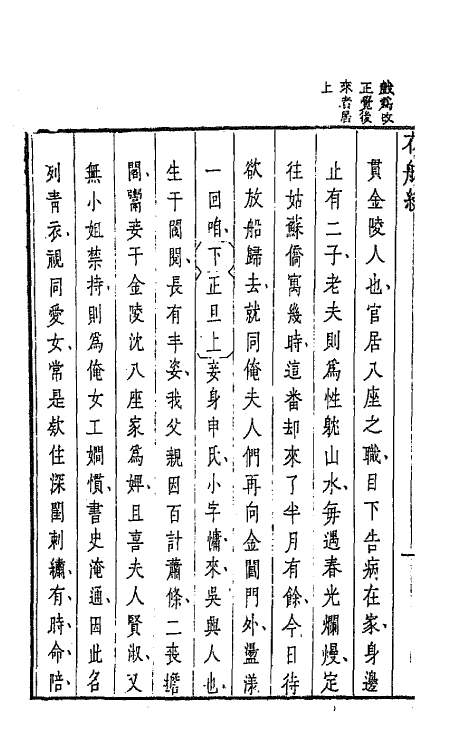 戲為改
正覺後
來者居
上
貫金陵人也、官居八座之職、目下告病在家、身邊
止有二子、老夫則為性躭山水、每遇春光爛熳、定
往姑蘇僑寓幾時、這番却來了半月有餘、今日待
欲放船歸去、就同俺夫人們再向金閶門外、盪漾
一回咱、下正旦上妾身申氏、小字慵來、吳興人也、
生于閥閱、長有丰姿、我父親因百計蕭條、二喪擔
閣、鬻妾于金陵沈八座家為婢、且喜夫人賢淑、又
無小姐禁持、則為俺女工嫺慣、書史淹通、因此名
列青衣、視同愛女、常是教住深閨刺繡、有時命陪